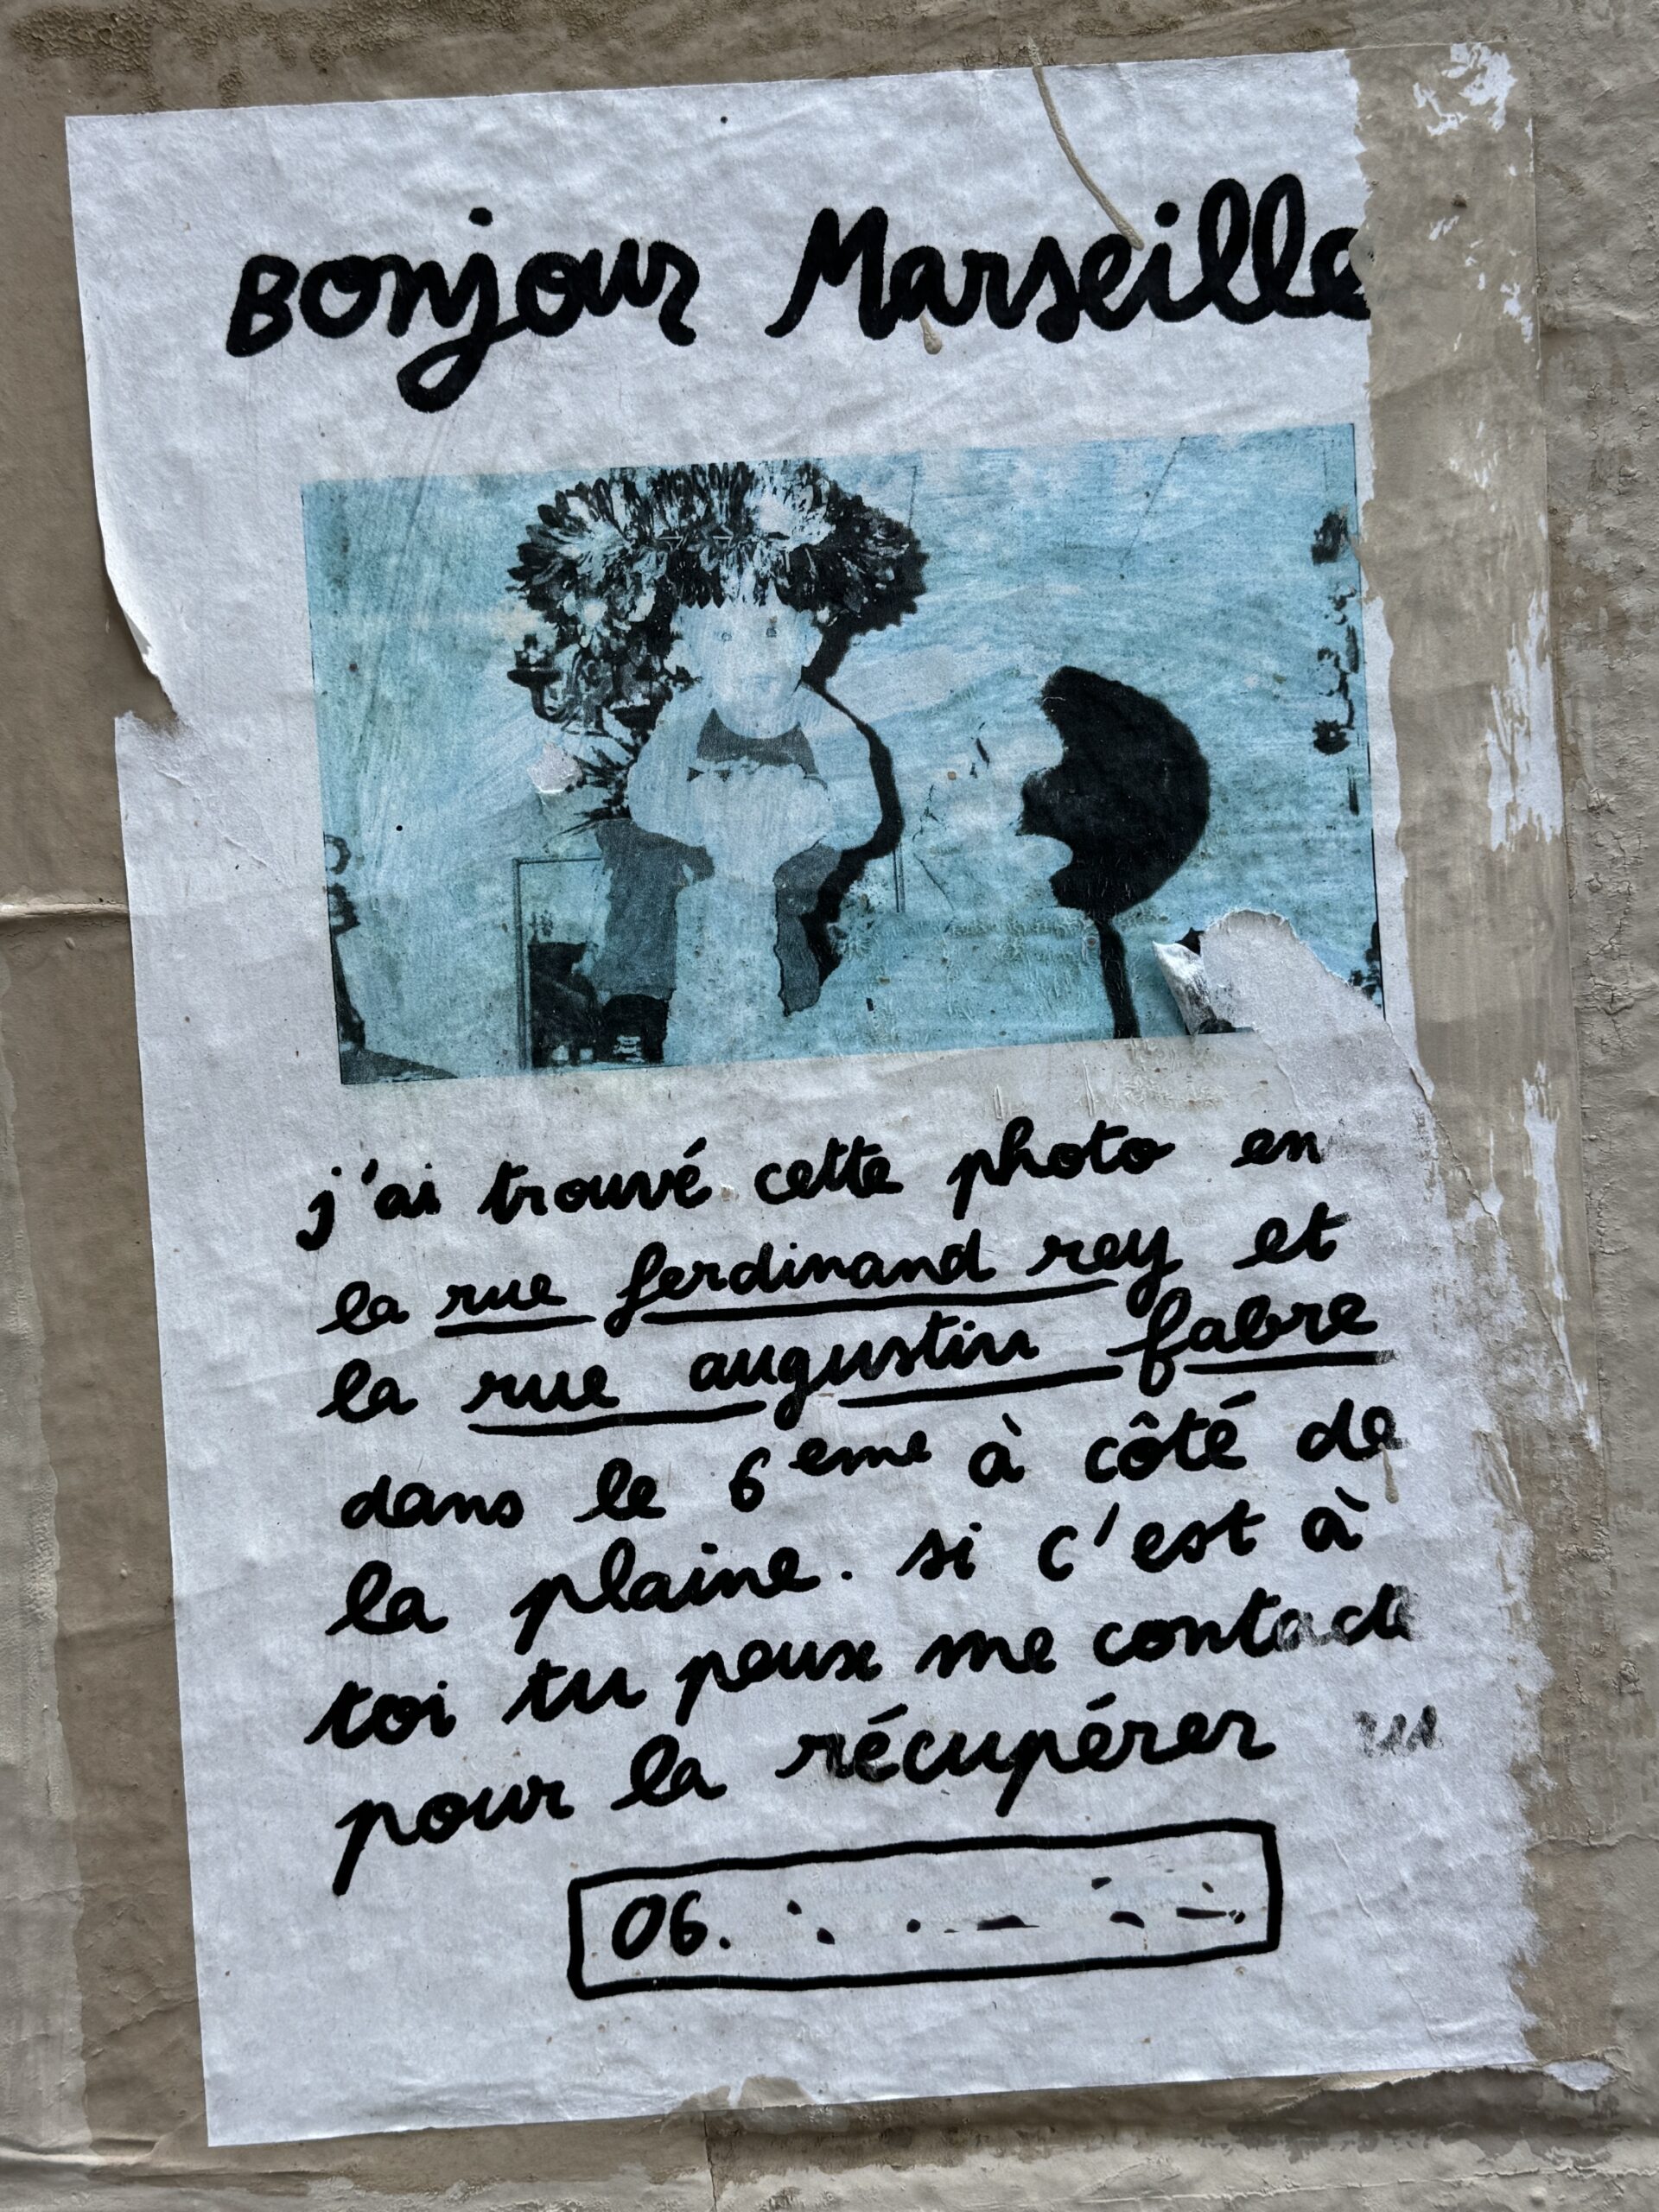 Bonjour Marseille
j'ai trouvé cette photo en
la rue ferdinand rey et
la rue augustin fabre
dans le 6eme à côté de
la plaine. si c'est à
toi tu peux me contacte
pour la récupérer
06.